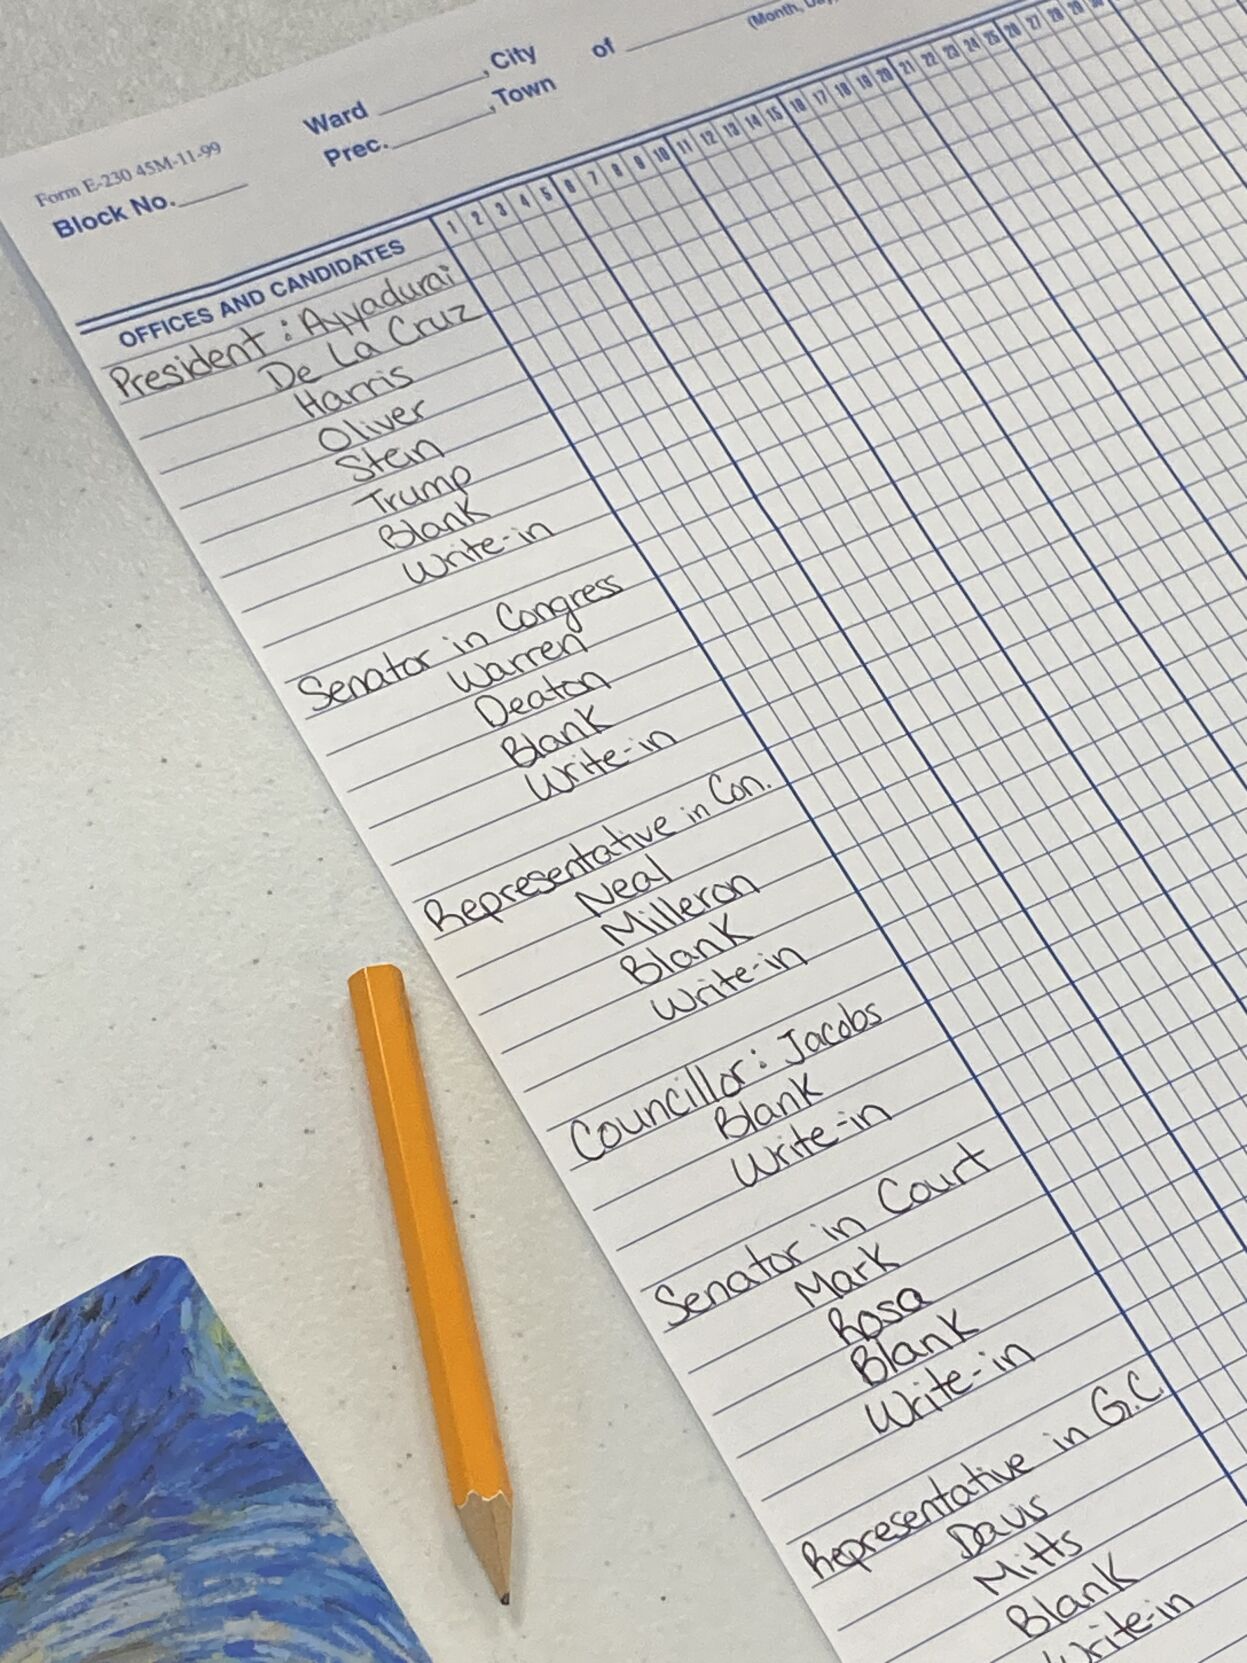 Ward ______, City of ______
(Month, Day,
Prec. ______, Town
Form E-230 45M-11-99
Block No. ______
OFFICES AND CANDIDATES 1 2 3 4 5 6 7 8 9 10 11 12 13 14 15 16 17 18 19 20 21 22 23 24 25 26 27 28 29 30
President: Ayyadurai
De La Cruz
Harris
Oliver
Stein
Trump
Blank
Write-in
Senator in Congress
Warren
Deaton
Blank
Write-in
Representative in Con.
Neal
Milleron
Blank
Write-in
Councillor: Jacobs
Blank
Write-in
Senator in Court
Mark
Rosa
Blank
Write-in
Representative in G.C.
Davis
Mitts
Blank
Write-in